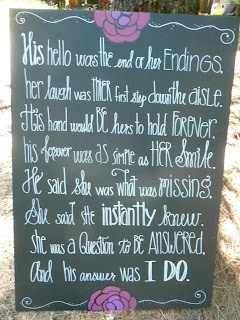 His hello was the end of her ENDINGS.
her laugh was THIER first step down the aisle.
His hand would BE hers to hold FOREVER.
his forever was as simple as HER Smile.
He said she was what was missing.
She said she instantly knew.
She was a Question to BE ANSWERED.
And his answer was I DO.